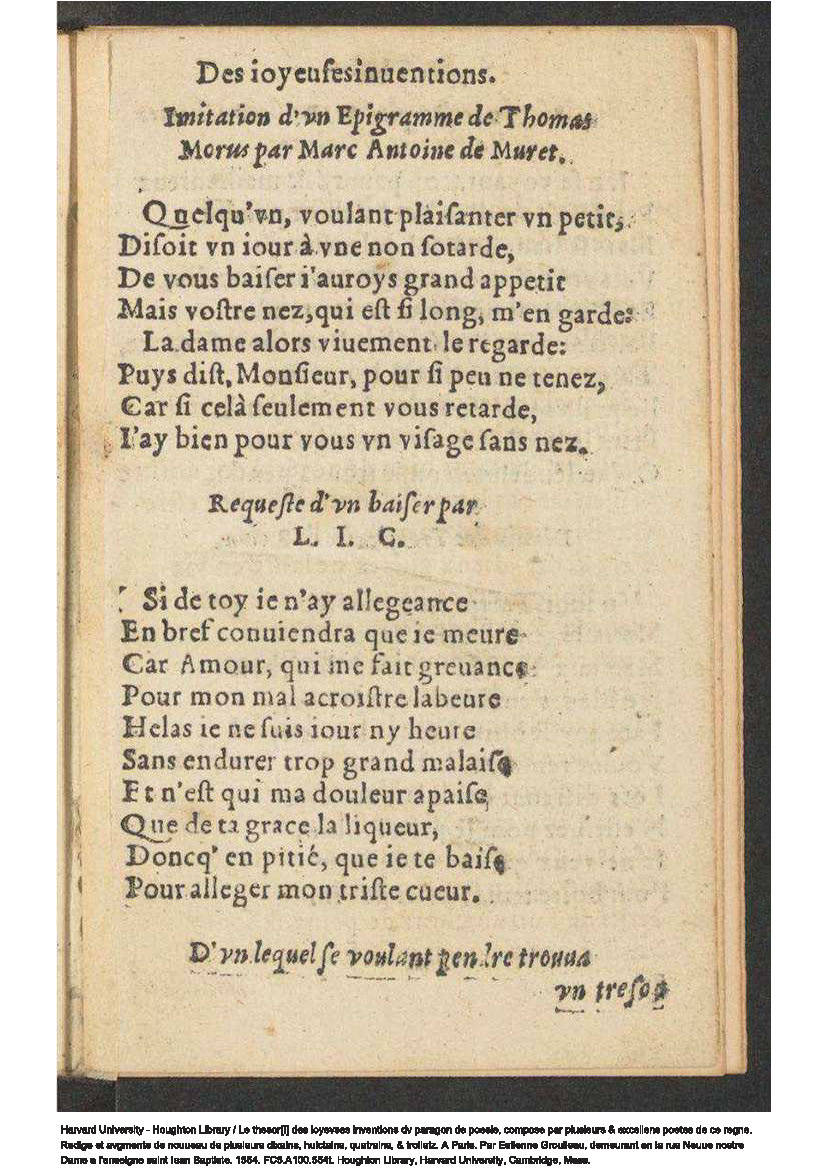 Des ioyeuſes inuentions.
Imitation d'vn Epigramme de Thomas
Morus par Marc Antoine de Muret.
Quelqu'vn, voulant plaiſanter vn petit,
Diſoit vn iour à vne non ſotarde,
De vous baiſer i'auroys grand appetit
Mais voſtre nez, qui eſt ſi long, m'en garde:
La dame alors viuement le regarde:
Puys diſt, Monſieur, pour ſi peu ne tenez,
Car ſi celà ſeulement vous retarde,
I'ay bien pour vous vn viſage ſans nez.
Requeſte d'vn baiſer par
L. I. C.
Si de toy ie n'ay allegeance
En bref conuiendra que ie meure
Car Amour, qui me fait greuance
Pour mon mal acroiſtre labeure
Helas ie ne ſuis iour ny heure
Sans endurer trop grand malaiſe
Et n'eſt qui ma douleur apaiſe
Que de ta grace la liqueur,
Doncq' en pitié, que ie te baiſe
Pour alleger mon triſte cueur.
D'vn lequel ſe voulant pendre trouua
vn treſor
Harvard University - Houghton Library / Le thesor[!] des ioyevses inventions dv paragon de poesie, compose par plusieurs & excellens poetes de ce regne.
Redige et avgmente de nouueau de plusieurs dixains, huictains, quatrains, & trolietz. A Paris. Par Estienne Groulleau, demeurant en la rue Neuue nostre
Dame a l'enseigne saint Iean Baptiste. 1554. FC5.A100.554t. Houghton Library, Harvard University, Cambridge, Mass.